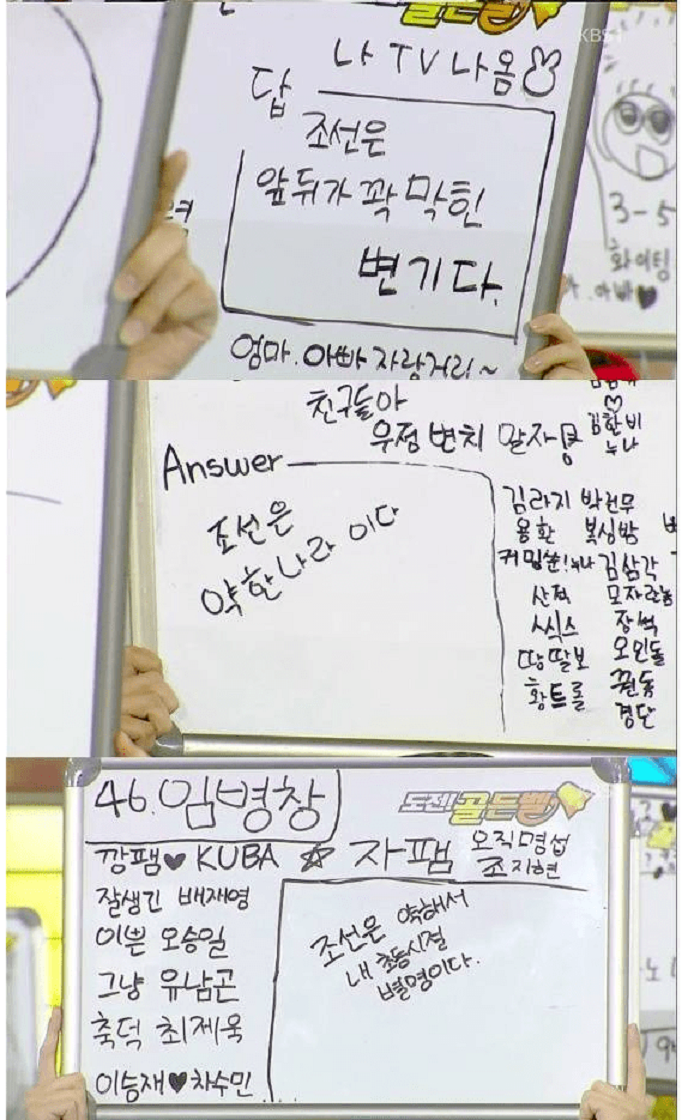 도전골든벨
KBS1
나 TV 나옴
답
조선은
앞뒤가 꽉 막힌
변기다.
엄마. 아빠 자랑거리~
3-5
화이팅
아빠♥
친구들아
우정 변치 말자
Answer
조선은
약한나라 이다
김한비
누나
김라지 박천무
용환 복싱밤
커밍쑨!누나 김삼각
산적
식스 장벽
땅딸보 오인돌
황트롤
경단
46.임병창
도전골든벨
깡팸♥KUBA ☆ 자팸 오직명섭
조지현
잘생긴 배재영
이쁜 오승일
그냥 유남곤
축덕 최제욱
이승재♥차수민
조선은 약해서
내 초등시절
별명이다.